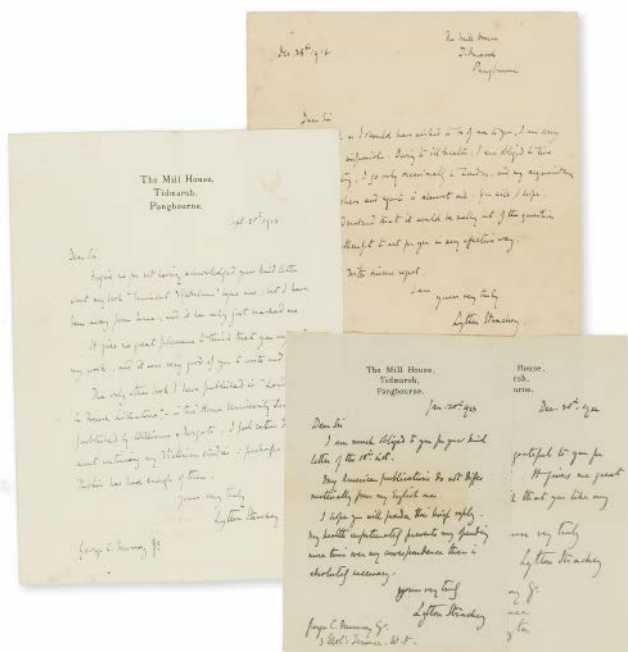 Dec. 25th 1918
The Mill House
Tidmarsh
Pangbourne
Dear Sir
as I should have wished to be of use to you, I am very
impossible. Owing to ill health, I am obliged to live
I go only occasionally to London, and my acquaintance
and agents is almost nil. You will, I hope,
understand that it would be really out of the question
attempt to act for you in any effective way.
With sincere regret
I am
yours very truly
Lytton Strachey.
The Mill House,
Tidmarsh,
Pangbourne.
Sept. 21st
Dear Sir
Forgive me for not having acknowledged your kind letter
about my book "Eminent Victorians" before now, but I have
been away from home, and it has only just reached me.
It gives me great pleasure to think that you
my work, and it was very good of you to write and
The only other book I have published is "Land
in French Literature" – in the Home University
published by Williams & Norgate. I feel rather
about continuing my Victorian studies; perhaps
Public has had enough of them.
yours very truly
Lytton Strachey
George C. Murray Esq.
The Mill House,
Tidmarsh,
Pangbourne.
Jan. 20th 1923
Dear Sir
I am much obliged to you for your kind
letter of the 18th inst.
My American publications do not differ
materially from my English ones.
I hope you will pardon this brief reply.
My health unfortunately prevents my spending
more time over my correspondence than is
absolutely necessary.
yours very truly
Lytton Strachey
George C. Murray Esq.
House,
rsh,
urne.
Dec. 30th
grateful to you for
It gives me great
that you like my
very truly
Lytton Strachey